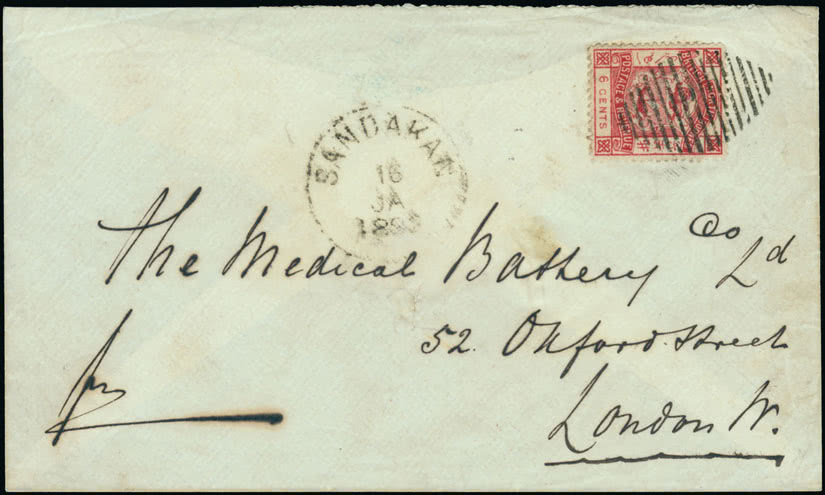 POSTAGE & REVENUE
6 CENTS
SANDAKAN
16
JA
The Medical Battery Co Ld
52. Oxford Street
London W.